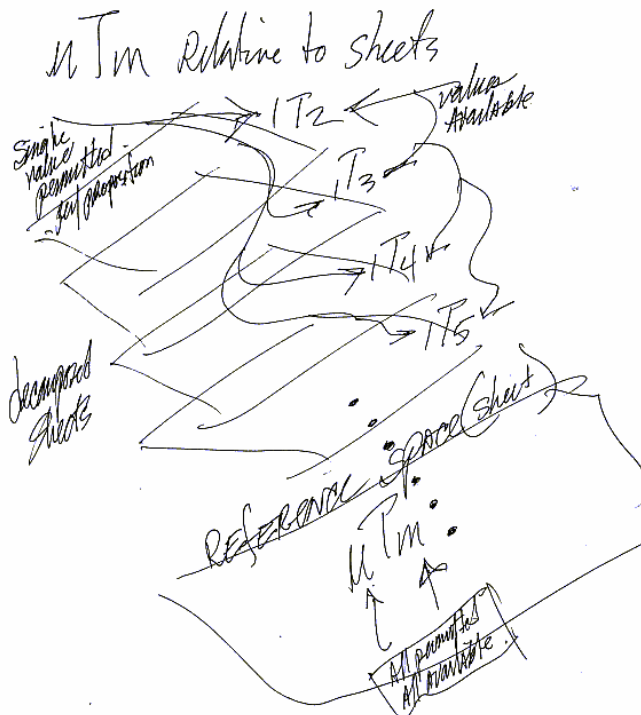 nTm Relative to sheets
Single
value
permitted
per proposition
1T2
values
Available
1T3
1T4
1T5
decomposed
sheets
REFERENCE SPACE (sheet)
nTm
All permitted
All available